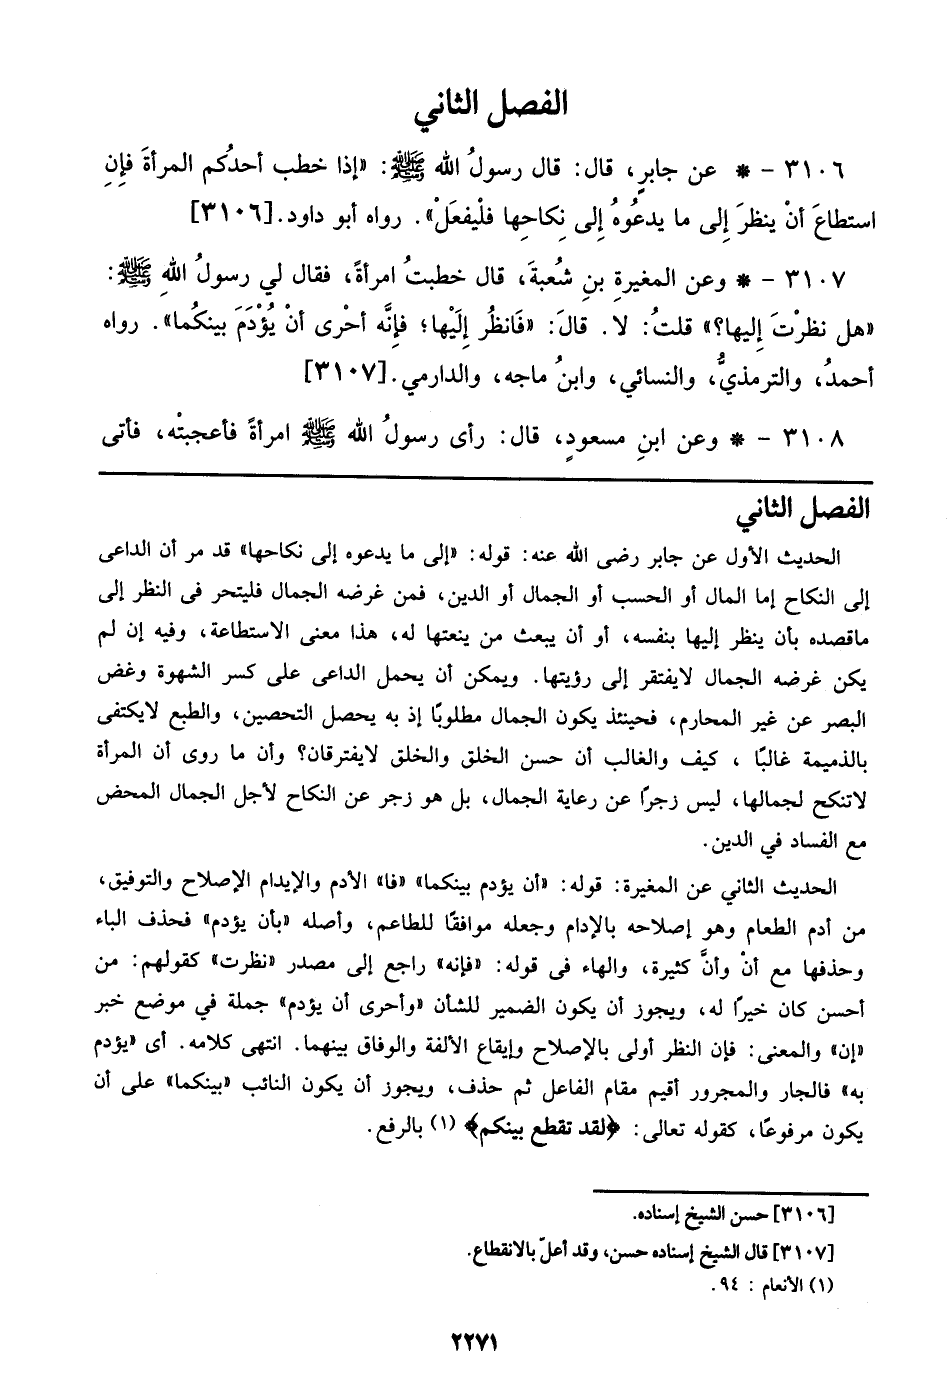 الفصل الثاني
٣١٠٦ – * عن جابرٍ، قال: قال رسولُ الله ﷺ: «إذا خطب أحدُكم المرأةَ فإنِ
استطاعَ أنْ ينظرَ إلى ما يدعُوهُ إلى نِكاحِها فلْيفعَلْ». رواه أبو داود.[٣١٠٦]
٣١٠٧ – * وعن المغيرةِ بنِ شُعبةَ، قال خطبتُ امرأةً، فقال لي رسولُ اللهِ ﷺ:
«هل نظرْتَ إليها؟» قلتُ: لا. قالَ: «فَانظُر إلَيْها؛ فإنَّه أحْرى أنْ يُؤْدَمَ بينكُما». رواه
أحمدُ، والترمذيُّ، والنسائي، وابنُ ماجه، والدارمي.[٣١٠٧]
٣١٠٨ – * وعن ابنِ مسعودٍ، قال: رأى رسولُ الله ﷺ امرأةً فأعجبتْه، فأتى
الفصل الثاني
الحديث الأول عن جابر رضى الله عنه: قوله: «إلى ما يدعوه إلى نكاحها» قد مر أن الداعى
إلى النكاح إما المال أو الحسب أو الجمال أو الدين، فمن غرضه الجمال فليتحر فى النظر إلى
ماقصده بأن ينظر إليها بنفسه، أو أن يبعث من ينعتها له، هذا معنى الاستطاعة، وفيه إن لم
يكن غرضه الجمال لايفتقر إلى رؤيتها. ويمكن أن يحمل الداعى على كسر الشهوة وغض
البصر عن غير المحارم، فحينئذ يكون الجمال مطلوبًا إذ به يحصل التحصين، والطبع لايكتفى
بالذميمة غالبًا ، كيف والغالب أن حسن الخلق والخلق لايفترقان؟ وأن ما روى أن المرأة
لاتنكح لجمالها، ليس زجرًا عن رعاية الجمال، بل هو زجر عن النكاح لأجل الجمال المحض
مع الفساد في الدين.
الحديث الثاني عن المغيرة: قوله: «أن يؤدم بينكما» «فا» الأدم والإيدام الإصلاح والتوفيق،
من أدم الطعام وهو إصلاحه بالإدام وجعله موافقًا للطاعم، وأصله «بأن يؤدم» فحذف الباء
وحذفها مع أنْ وأنَّ كثيرة، والهاء فى قوله: «فإنه» راجع إلى مصدر «نظرت» كقولهم: من
أحسن كان خيرًا له، ويجوز أن يكون الضمير للشأن «وأحرى أن يؤدم» جملة في موضع خبر
«إن» والمعنى: فإن النظر أولى بالإصلاح وإيقاع الألفة والوفاق بينهما. انتهى كلامه. أى «يؤدم
به» فالجار والمجرور أقيم مقام الفاعل ثم حذف، ويجوز أن يكون النائب «بينكما» على أن
يكون مرفوعًا، كقوله تعالى: ﴿لقد تقطع بينكم﴾ (١) بالرفع.
[٣١٠٦] حسن الشيخ إسناده.
[٣١٠٧] قال الشيخ إسناده حسن، وقد أعلّ بالانقطاع.
(١) الأنعام : ٩٤.
٢٢٧١